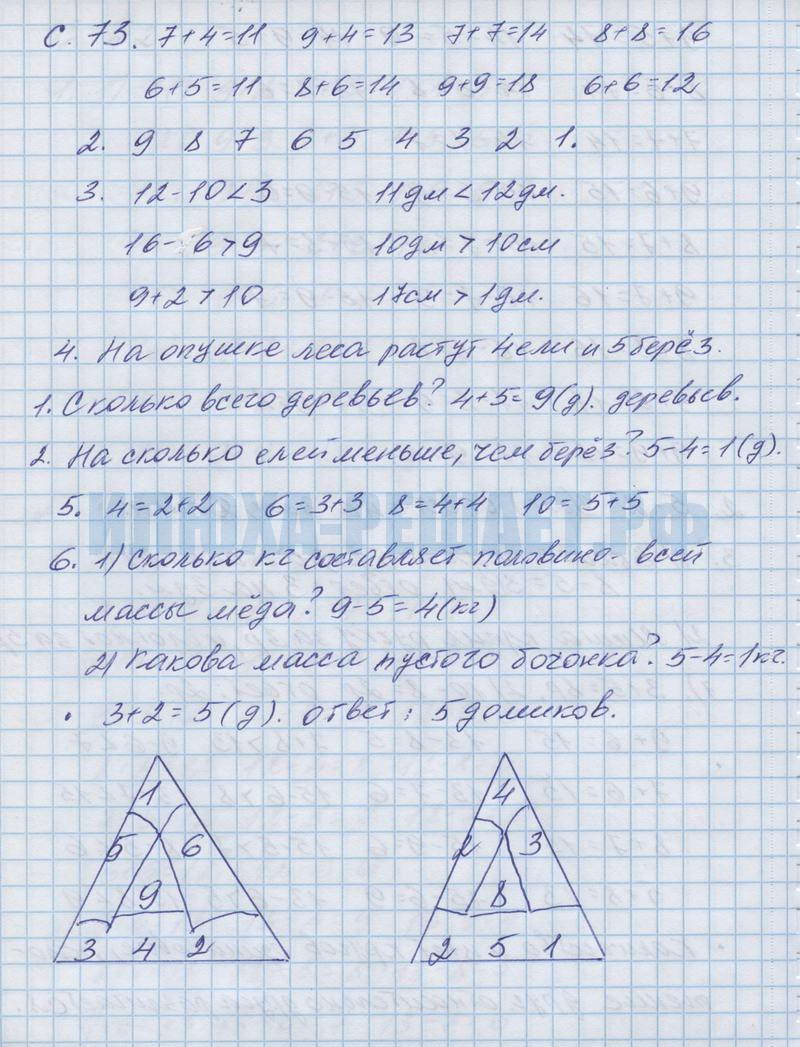 с. 73. 7+4=11 9+4=13 7+7=14 8+8=16
6+5=11 8+6=14 9+9=18 6+6=12
2. 9 8 7 6 5 4 3 2 1.
3. 12-10<3 11дм<12дм.
16-6>9 10дм>10см
9+2>10 17см>1дм.
4. На опушке леса растут 4ели и 5берёз.
1. Сколько всего деревьев? 4+5=9(д). деревьев.
2. На сколько елей меньше, чем берёз? 5-4=1(д).
5. 4=2+2 6=3+3 8=4+4 10=5+5
ИЛЮХА-РЕШАЕТ.РФ
6. 1) Сколько кг составляет половино- всей
массы мёда? 9-5=4(кг)
2) Какова масса пустого бочонка? 5-4=1кг.
• 3+2=5(д). ответ: 5домиков.
1 4
5 6 2 3
9 8
3 4 2 2 5 1